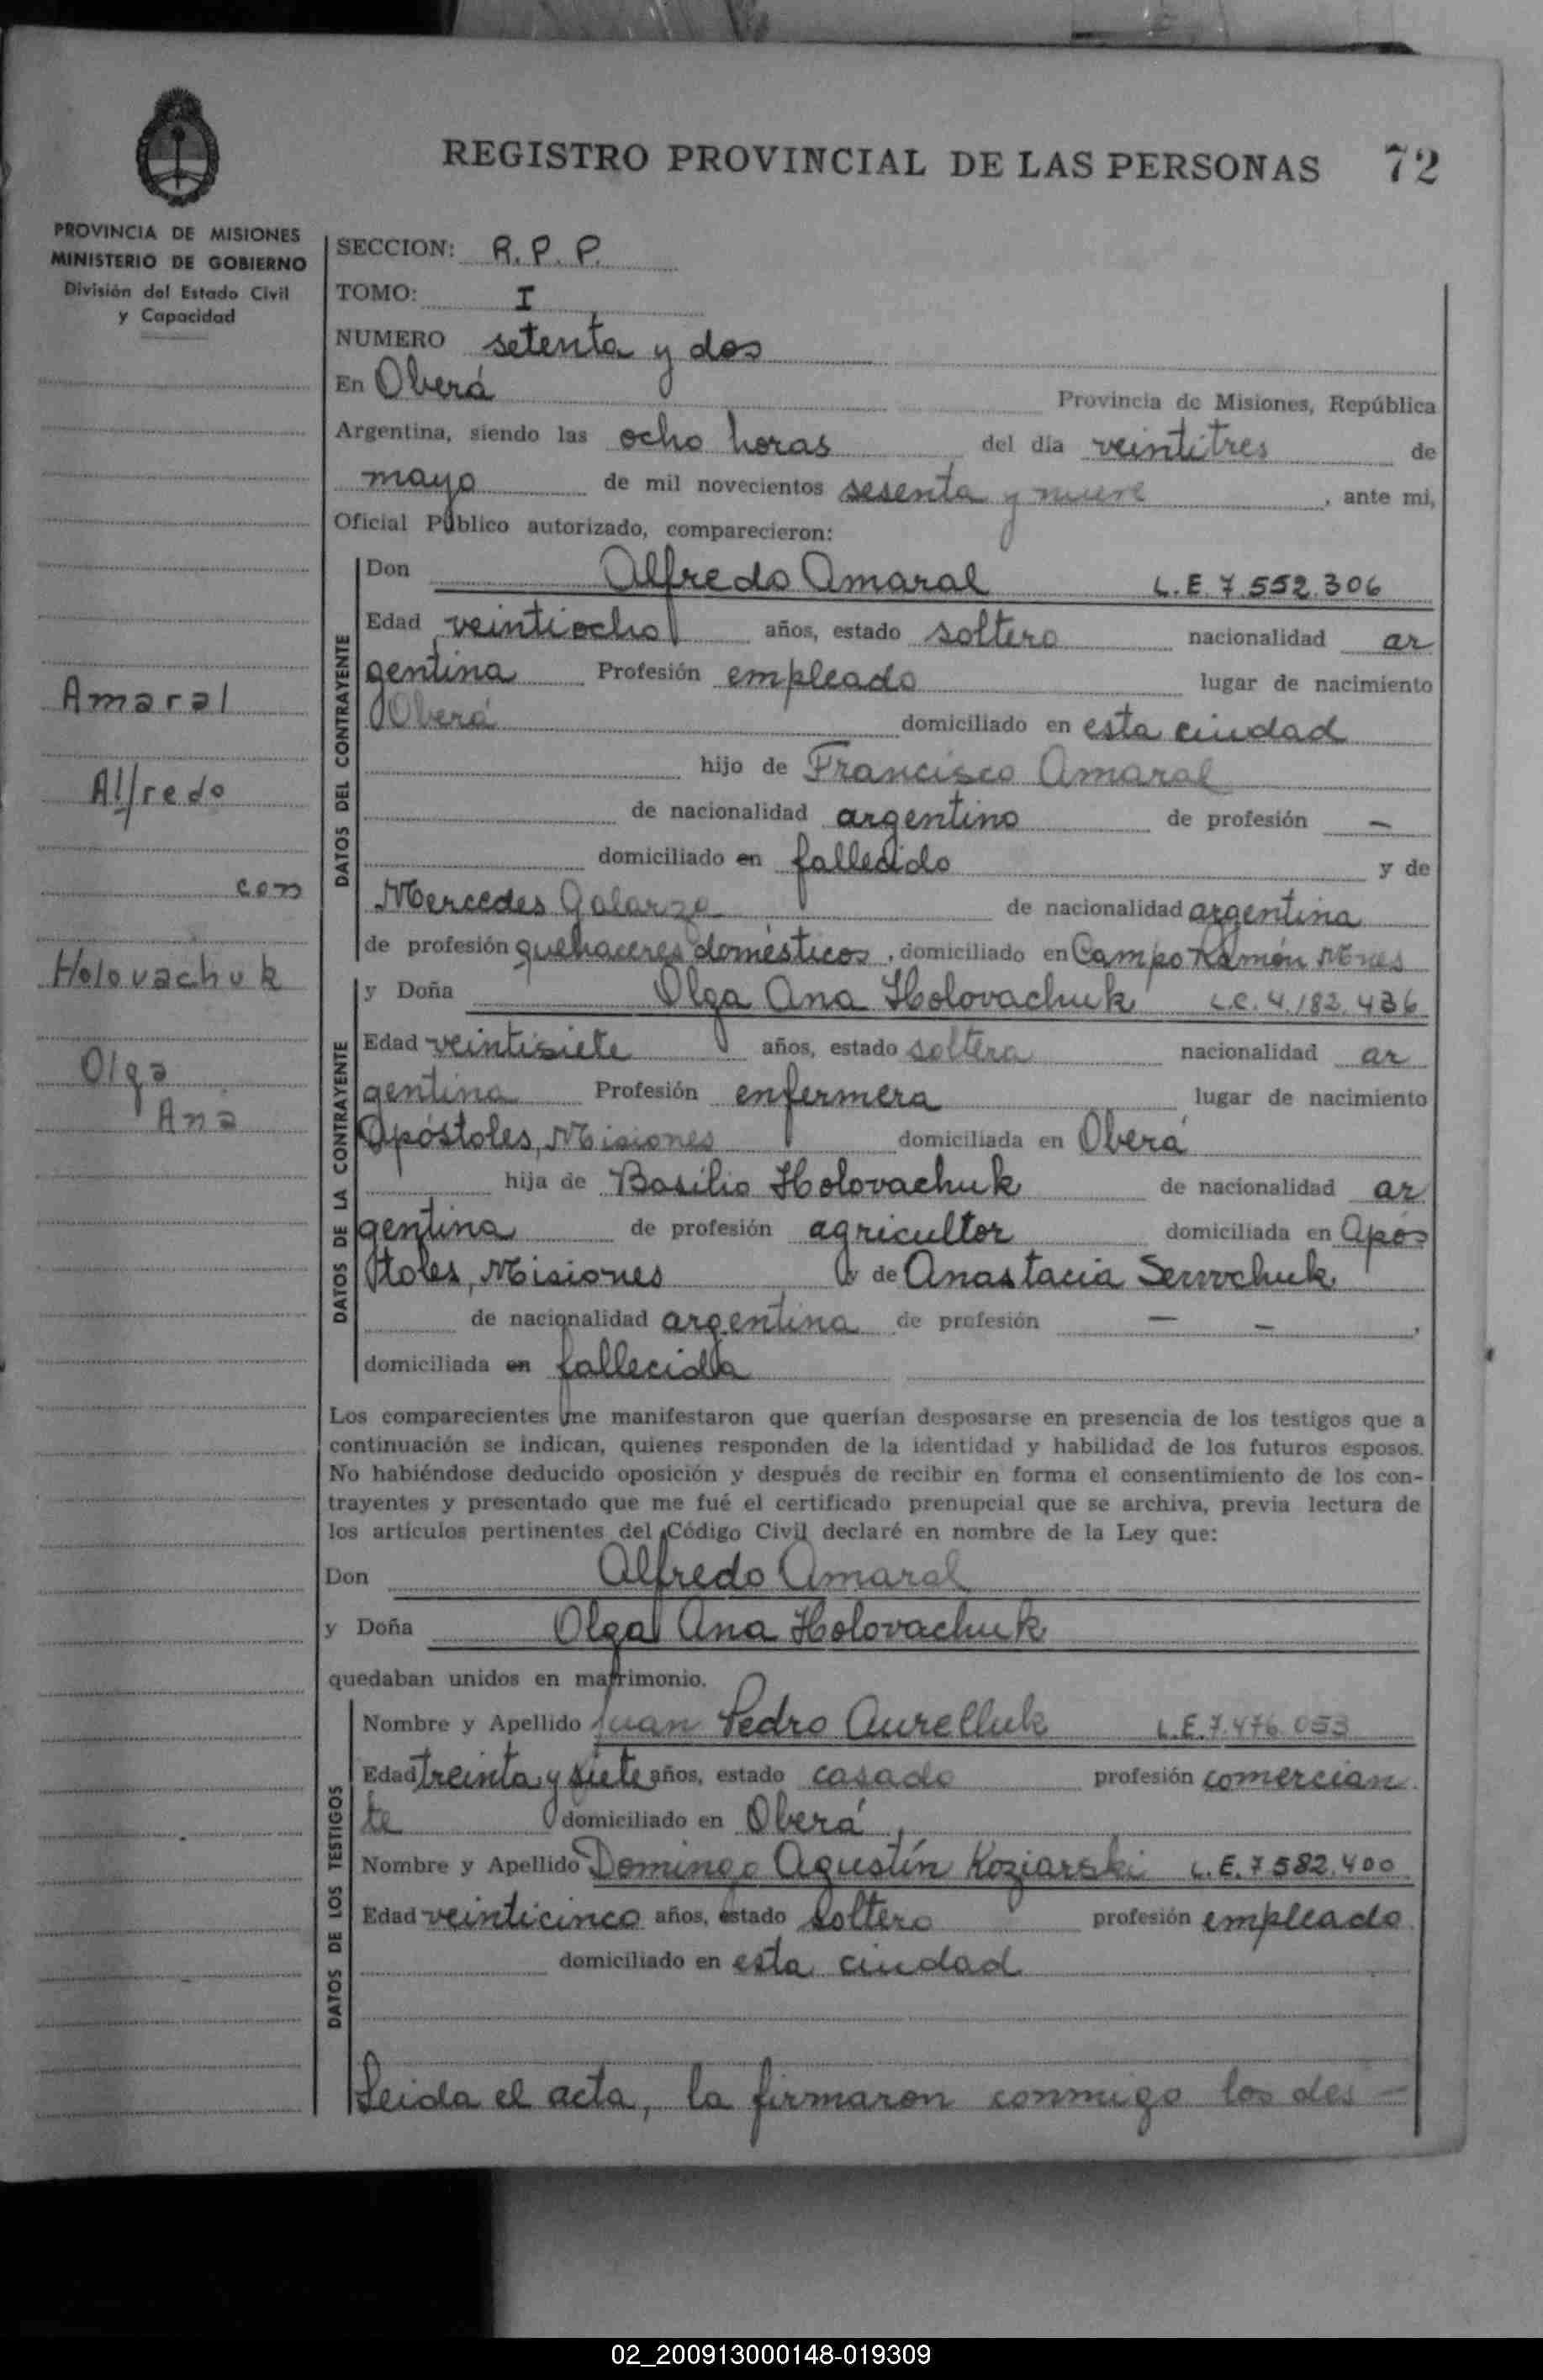 REGISTRO PROVINCIAL DE LAS PERSONAS 72
PROVINCIA DE MISIONES
MINISTERIO DE GOBIERNO
División del Estado Civil
y Capacidad
Amaral
Alfredo
con
Holovachuk
Olga
Ana
SECCION: R. P. P.
TOMO: I
NUMERO setenta y dos
En Oberá Provincia de Misiones, República
Argentina, siendo las ocho horas del día veintitres de
mayo de mil novecientos sesenta y nueve, ante mi,
Oficial Público autorizado, comparecieron:
DATOS DEL CONTRAYENTE
Don Alfredo Amaral L.E. 7.552.306
Edad veintiocho años, estado soltero nacionalidad ar
gentina Profesión empleado lugar de nacimiento
Oberá domiciliado en esta ciudad
hijo de Francisco Amaral
de nacionalidad argentino de profesión —
domiciliado en fallecido y de
Mercedes Galarza de nacionalidad argentina
de profesión quehaceres domésticos, domiciliado en Campo Ramón Mnes
DATOS DE LA CONTRAYENTE
y Doña Olga Ana Holovachuk L.C. 4.182.436
Edad veintisiete años, estado soltera nacionalidad ar
gentina Profesión enfermera lugar de nacimiento
Apóstoles, Misiones domiciliada en Oberá
hija de Basilio Holovachuk de nacionalidad ar
gentina de profesión agricultor domiciliada en Após
toles, Misiones y de Anastacia
de nacionalidad argentina de profesión — —,
domiciliada en fallecida
Los comparecientes me manifestaron que querían desposarse en presencia de los testigos que a
continuación se indican, quienes responden de la identidad y habilidad de los futuros esposos.
No habiéndose deducido oposición y después de recibir en forma el consentimiento de los con-
trayentes y presentado que me fué el certificado prenupcial que se archiva, previa lectura de
los artículos pertinentes del Código Civil declaré en nombre de la Ley que:
Don Alfredo Amaral
y Doña Olga Ana Holovachuk
quedaban unidos en matrimonio.
DATOS DE LOS TESTIGOS
Nombre y Apellido Juan Pedro Aurelluk L.E. 7.476.053
Edad treinta y siete años, estado casado profesión comercian
te domiciliado en Oberá,
Nombre y Apellido Domingo Agustín Koziarski L.E. 7.582.400
Edad veinticinco años, estado soltero profesión empleado
domiciliado en esta ciudad
Leida el acta, la firmaron conmigo los des —
02_200913000148-019309